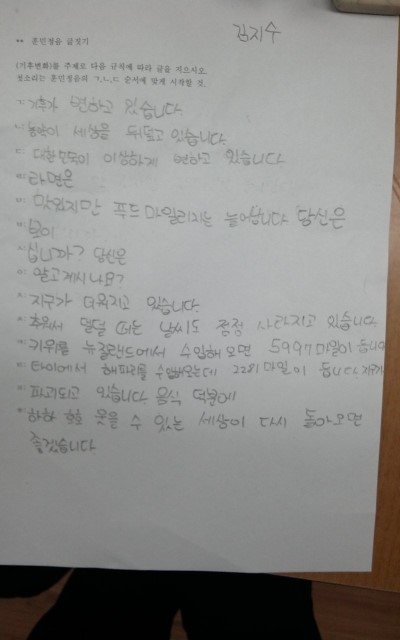 김지수
** 훈민정음 글짓기
(기후변화)를 주제로 다음 규칙에 따라 글을 지으시오.
첫소리는 훈민정음의 ㄱ,ㄴ,ㄷ 순서에 맞게 시작할 것.
ㄱ: 기후가 변하고 있습니다.
ㄴ: 농약이 세상을 뒤덮고 있습니다.
ㄷ: 대한민국이 이상하게 변하고 있습니다
ㄹ: 라면은
ㅁ: 맛있지만 푸드 마일리지는 늘어납니다 당신은
ㅂ: 보이
ㅅ: 십니까? 당신은
ㅇ: 알고 계시나요?
ㅈ: 지구가 더워지고 있습니다.
ㅊ: 추워서 덜덜 떠는 날씨도 점점 사라지고 있습니다
ㅋ: 키위를 뉴질랜드에서 수입해 오면 5997마일이 듭니다
ㅌ: 타이에서 해파리를 수입해오는데 2281마일이 듭니다 지구가
ㅍ: 파괴되고 있습니다. 음식 덕분에
ㅎ: 하하 호호 웃을 수 있는 세상이 다시 돌아오면
좋겠습니다